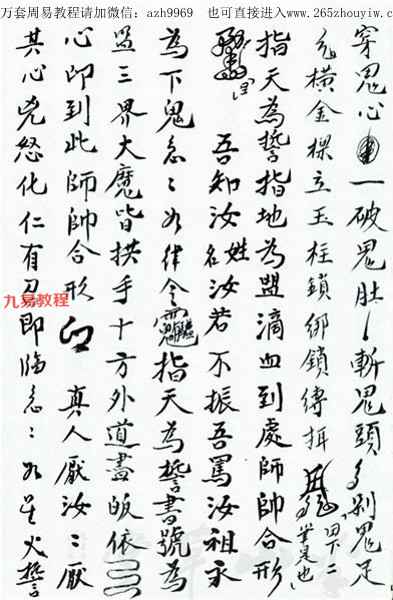 万套周易教程请加微信：azh9969　也可直接进入www.265zhouyiw.com
穿鬼心一破鬼肚乚斬鬼頭剁鬼足
橫金樑立玉柱鎖綁鎖縛
指天為誓指地為盟滴血到處師帥合形
吾知汝姓名汝若不振吾罵汝祖永
為下鬼急々如律令指天為誓書號為
盟三界大魔皆拱手十方外道盡皈依
心印到此師帥合形 真人厭汝々厭
其心兇怒化仁有刀即臨急々如星火誓
九易教程